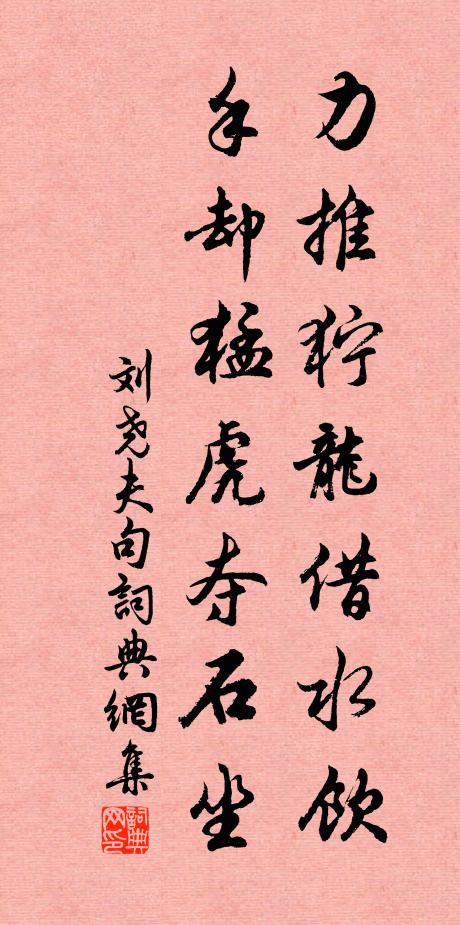 力推狞龍借水飲
手却猛虎夺石坐
刘尧夫句詞典網集
詞典网印